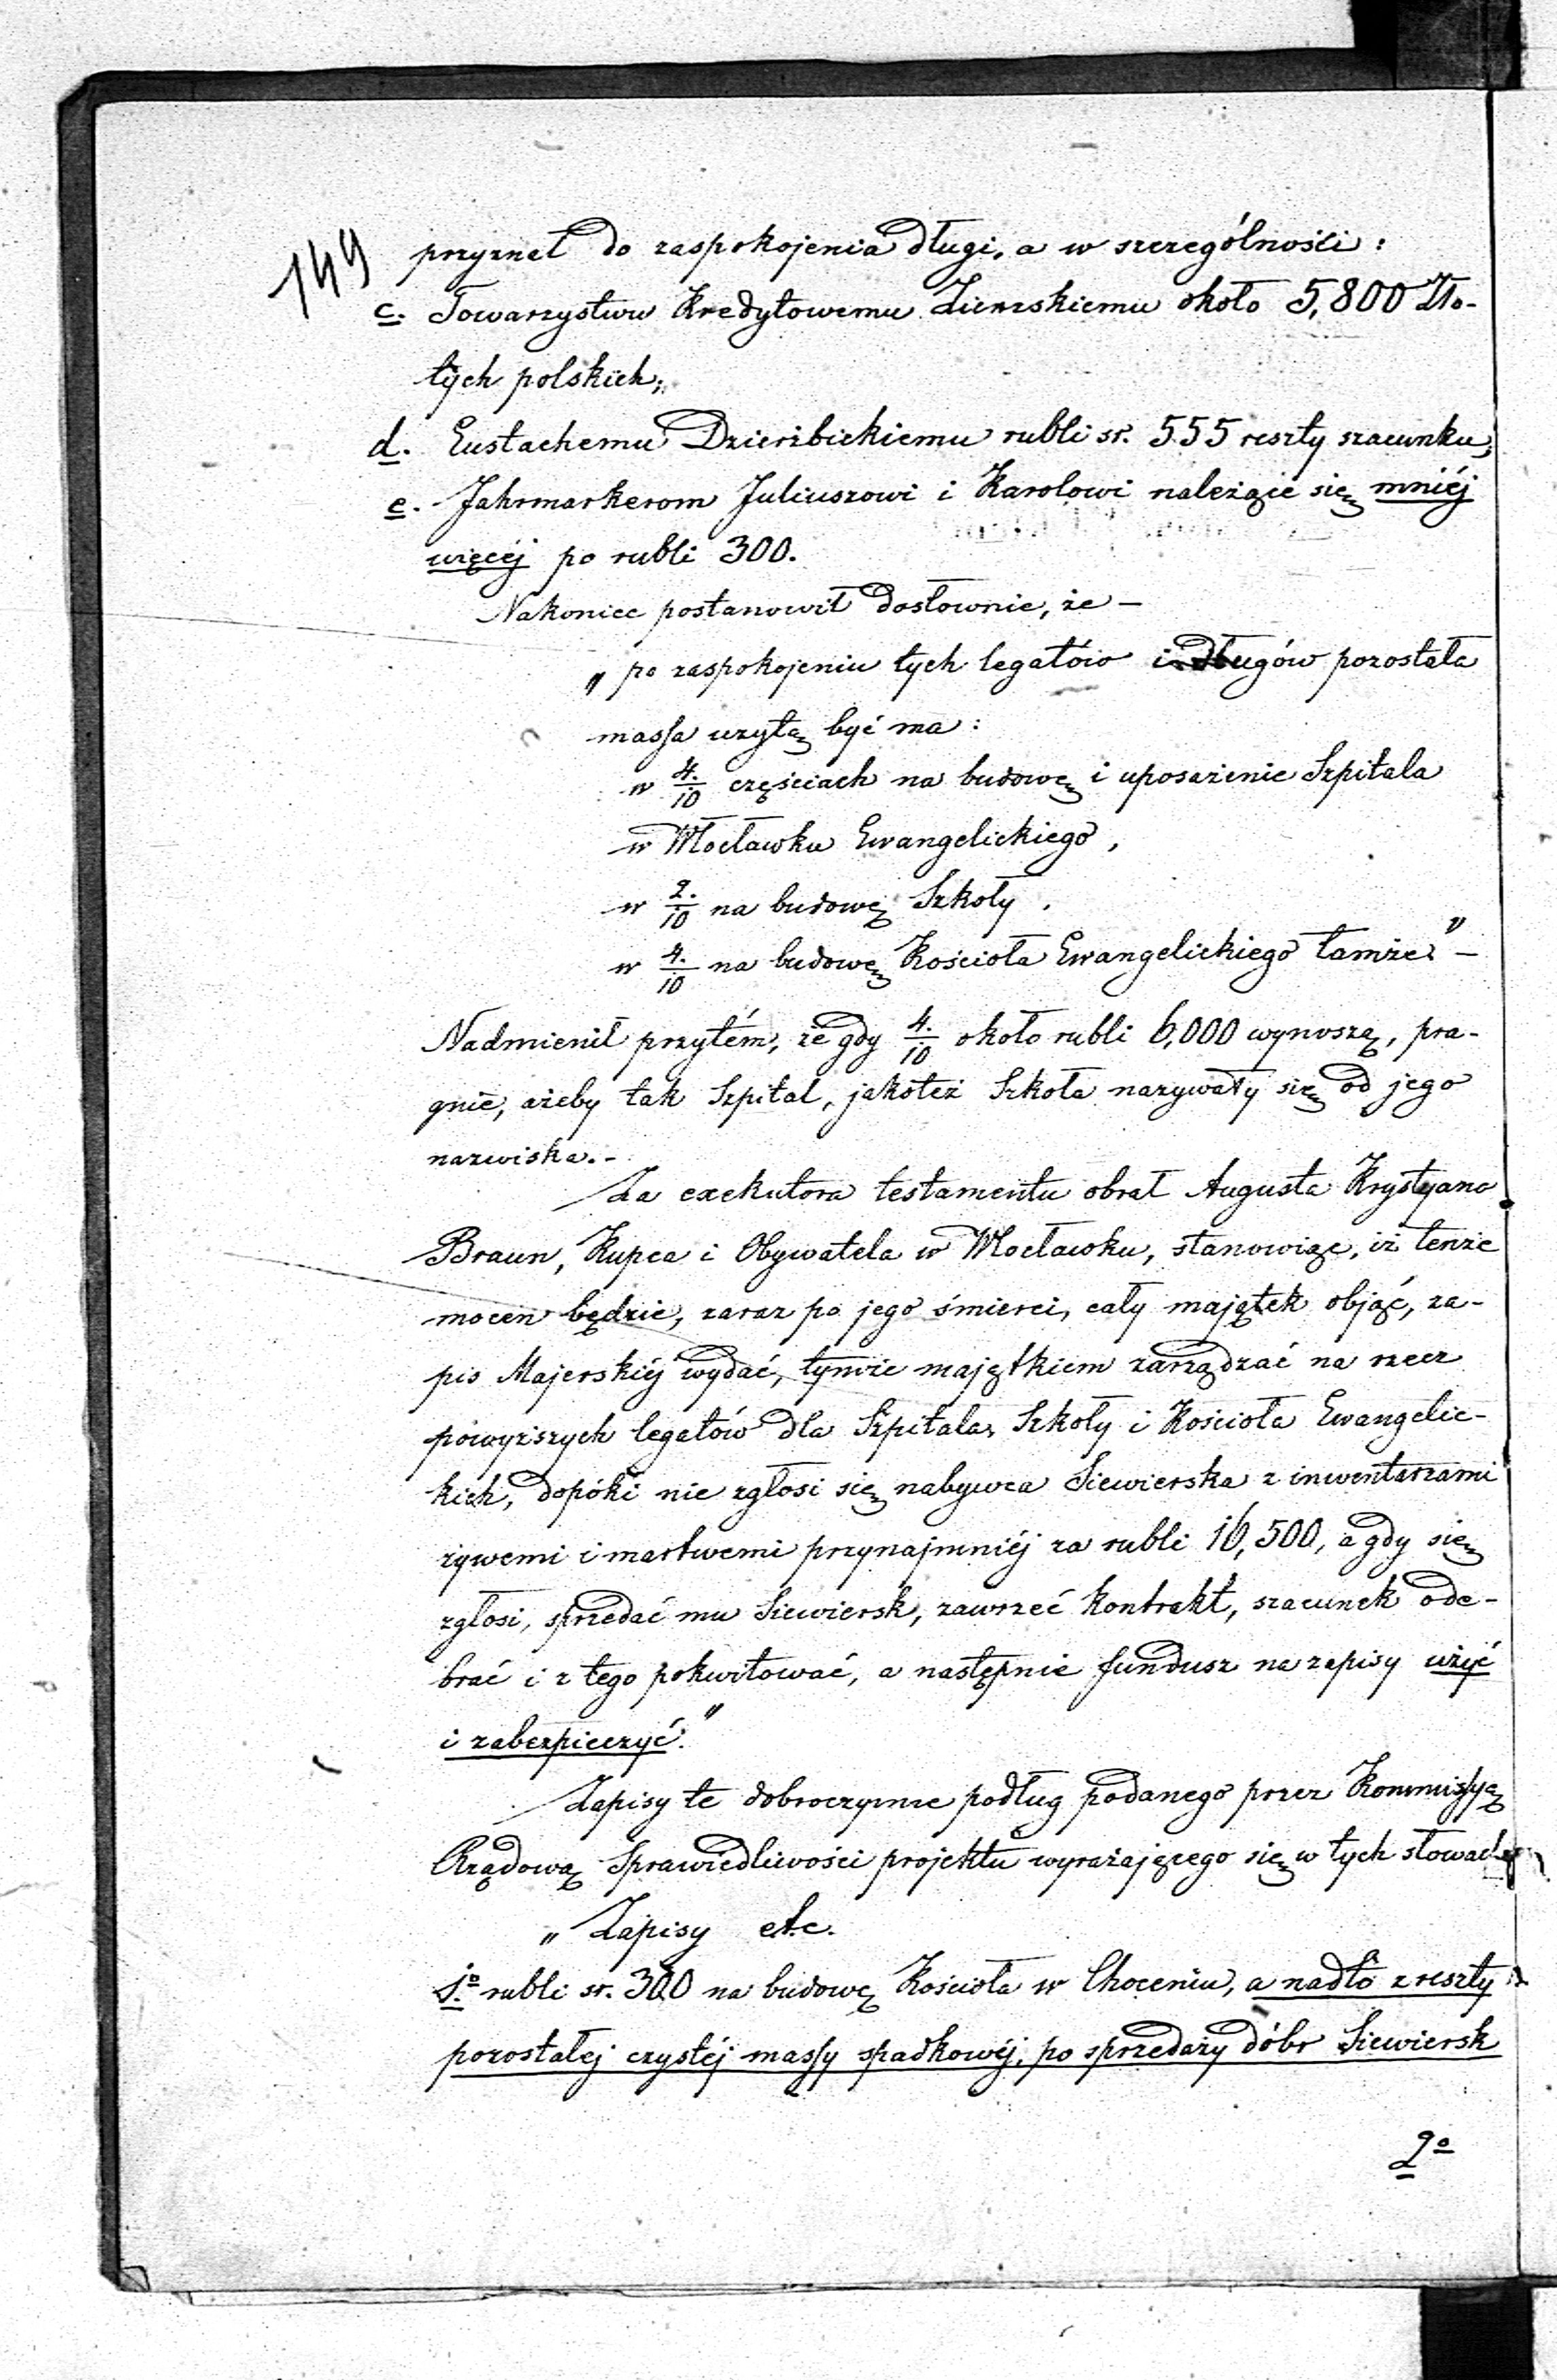 149
przyznał do zaspokojenia długi, a w szczególności:
c. Towarzystwu Kredytowemu Ziemskiemu około 5,800 Zło-
tych polskich;
d. Eustachemu Dzierżbickiemu rubli sr. 555 reszty szacunku;
e. Jahrmarkerom Juliuszowi i Karolowi należące się mniéj
więcéj po rubli 300.
Nakoniec postanowił dosłownie, że –
„po zaspokojeniu tych legatów i długów pozostała
massa użytą być ma:
w 4./10 częściach na budowę i uposażenie Szpitala
w Włocławku Ewangelickiego,
w 2./10 na budowę Szkoły,
w 4./10 na budowę Kościoła Ewangelickiego tamże." –
Nadmienił przytém, że gdy 4./10 około rubli 6,000 wynoszą, pra-
gnie, ażeby tak Szpital, jakoteż Szkoła nazywały się od jego
nazwiska. –
Za exekutora testamentu obrał Augusta Krystyana
Braun, Kupca i Obywatela w Włocławku, stanowiąc, iż tenże
mocen będzie, zaraz po jego śmierci, cały majątek objąć, za-
pis Majerskiéj wydać, tymże majątkiem zarządzać na rzecz
powyższych legatów dla Szpitala, Szkoły i Kościoła Ewangelic-
kich, dopóki nie zgłosi się nabywca Siewierska z inwentarzami
żywemi i martwemi przynajmniéj za rubli 16,500, a gdy się
zgłosi, sprzedać mu Siewiersk, zawrzeć kontrakt, szacunek ode-
brać i z tego pokwitować, a następnie fundusz na zapisy użyć
i zabezpieczyć."
Zapisy te dobroczynne podług podanego przez Kommissyą
Rządową Sprawiedliwości projektu wyrażającego się w tych słowach
„Zapisy etc.
1.º rubli sr. 300 na budowę Kościoła w Choceniu, a nadto z reszty
pozostałej czystéj massy spadkowéj, po sprzedaży dóbr Siewiersk
2º